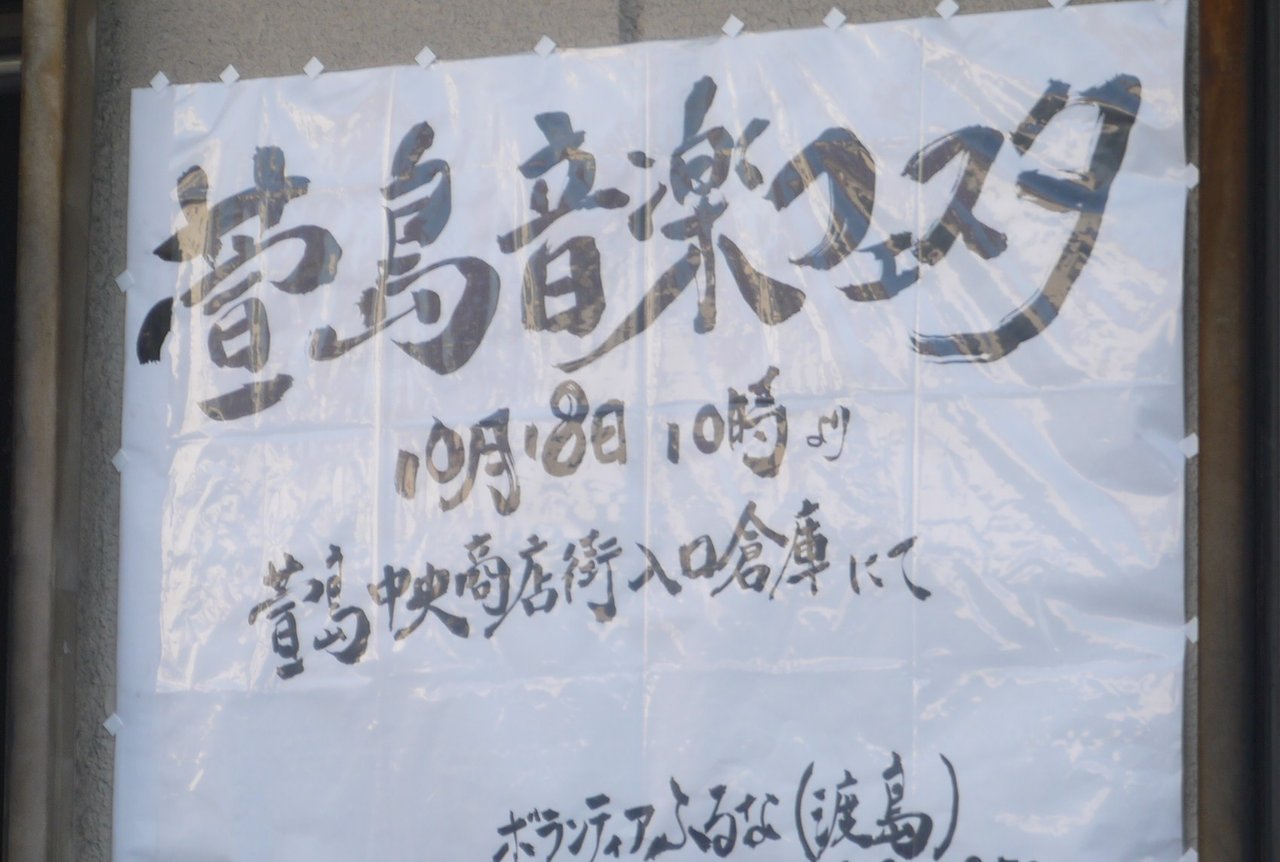 萱島音楽フェスタ
10月18日 10時より
萱島中央商店街入口倉庫にて
ボランティアふるな(渡島)